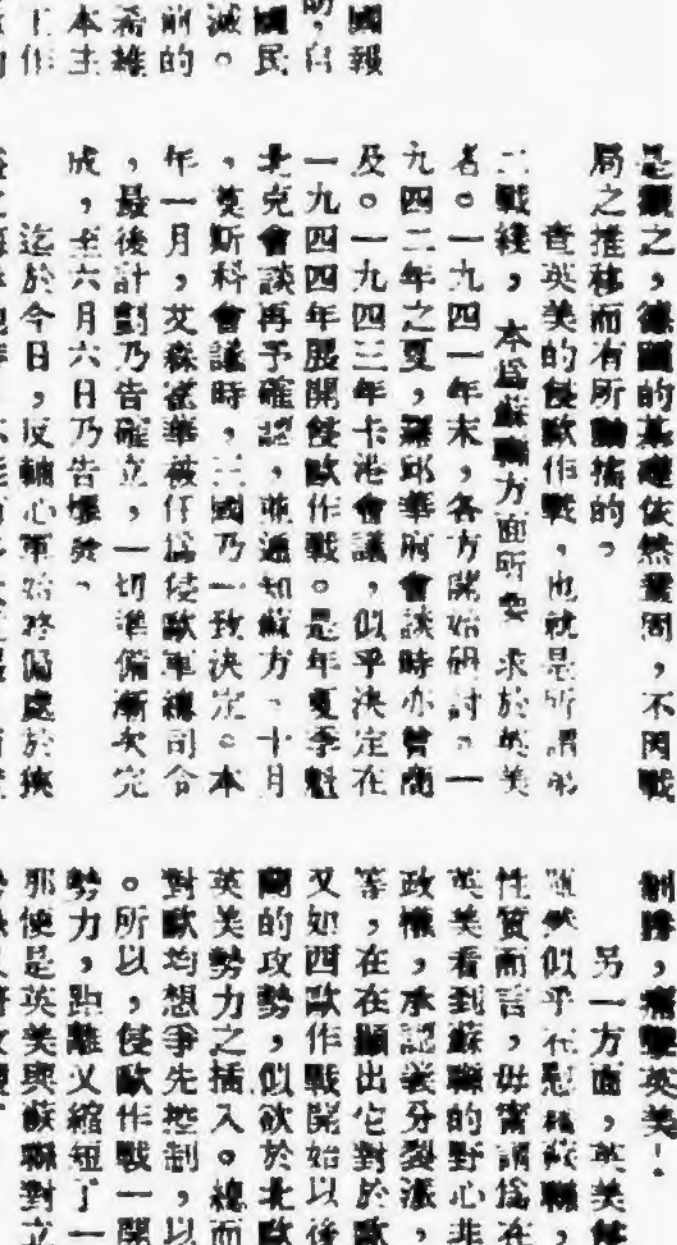 國報
助,自
國民
滅。
前的
希雄
本主
工作
是觀之,德國的基礎依然鞏固,不因戰
局之推移而有所動搖的。
查英美的侵歐作戰,也就是所謂第
二戰綫,本爲蘇聯方面所要求於英美
者。一九四一年末,各方開始研討。一
九四二年之夏,羅邱華府會談時亦曾商
及。一九四三年卡港會議,似乎決定在
一九四四年展開侵歐作戰。是年夏季魁
北克會談再予確認,並通知蘇方。十月
,莫斯科會議時,三國乃一致決定。本
年一月,艾森豪華被任爲侵歐軍總司令
,最後計劃乃告確立,一切準備漸次完
成,至六月六日乃告爆發。
迄於今日,反軸心軍始終偏處於狹
制勝,痛擊英美!
另一方面,英美
雖然似乎在慰藉蘇聯,
性質而言,毋寧謂爲在
英美看到蘇聯的野心非
政權,承認裳分裂派,
等,在在顯出它對於歐
又如西歐作戰開始以後
蘭的攻勢,似欲於北歐
英美勢力之插入。總而
對歐均想爭先控制,以
。所以,侵歐作戰一開
勢力,距離又縮短了一
那便是英美與蘇聯對立